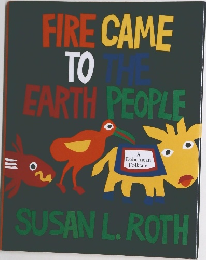 FIRE CAME
TO THE
EARTH PEOPLE
A
Dahomean
Folktale
SUSAN L. ROTH